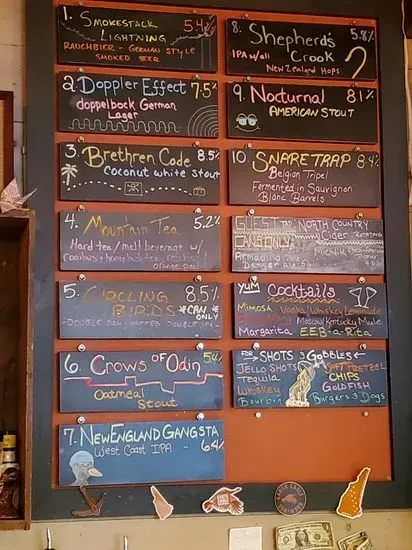 1. SMOKESTACK 5.4%
LIGHTNING
RAUCHBIER - GERMAN STYLE
SMOKED BEER
2. Doppler Effect 7.5%
doppelbock German
Lager
3. Brethren Code 8.5%
coconut white stout
4. Mountain Tea 5.2%
Hard tea/malt beverage w/
rooibos + honeybush tea,
orange peel
5. CIRCLING 8.5%
BIRDS *CAN ONLY*
-DOUBLE DRY-HOPPED DOUBLE IPA-
6. Crows of Odin 5.4%
Oatmeal
Stout
7. NEW ENGLAND GANGSTA
West Coast IPA - 6.4%
8. Shepherd's 5.8%
IPA w/all Crook
New Zealand Hops
9. Nocturnal 8.1%
AMERICAN STOUT
10. SNARETRAP 8.4%
Belgian Tripel
Fermented in Sauvignon
Blanc Barrels
GUEST TAP: NORTH COUNTRY
Cider
CANS ONLY:
YUM Cocktails
Mimosa Vodka/Whiskey Lemonade
Moscow/Kentucky Mule
Margarita EEB-a-Rita
FOR → SHOTS & Gobbles ←
JELLO SHOTS SOFT PRETZEL
Tequila CHIPS
Whiskey GOLDFISH
Bourbon Burgers & Dogs